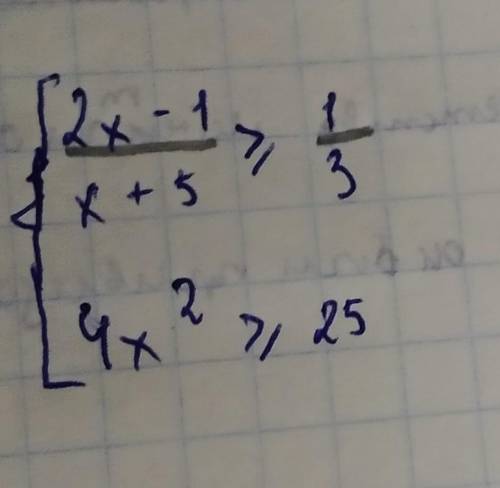 2x - 1 / x + 5 ⩾ 1 / 3
4x² ⩾ 25